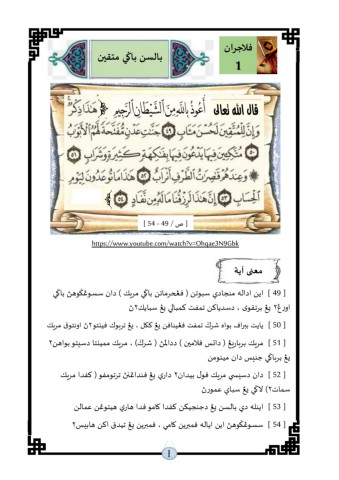 فلاجران
1
بالسن باݢي متقين
قال الله تعالى أَعُوذُ بِاللَّهِ مِنَ الشَّيْطَانِ الرَّجِيمِ هَٰذَا ذِكْرٌ
وَإِنَّ لِلْمُتَّقِينَ لَحُسْنَ مَـَٔابٍ ٤٩ جَنَّٰتِ عَدْنٍ مُّفَتَّحَةً لَّهُمُ ٱلْأَبْوَٰبُ
٥٠ مُتَّكِـِٔينَ فِيهَا يَدْعُونَ فِيهَا بِفَٰكِهَةٍ كَثِيرَةٍ وَشَرَابٍ ٥١
وَعِندَهُمْ قَٰصِرَٰتُ ٱلطَّرْفِ أَتْرَابٌ ٥٢ هَٰذَا مَا تُوعَدُونَ لِيَوْمِ
ٱلْحِسَابِ ٥٣ إِنَّ هَٰذَا لَرِزْقُنَا مَا لَهُۥ مِن نَّفَادٍ ٥٤
[ ص / 49 - 54 ]
https://www.youtube.com/watch?v=Ohqae3N9Gbk
معنى أية
[ 49 ] اين اداله منجادي سبوتن ( ڤڠحرماتن باݢي مريك ) دان سسوڠݢوهڽ باݢي
اورڠ٢ يڠ برتقوى ، دسدياكن تمڤت كمبالي يڠ سبايك٢ڽ
[ 50 ] يايت ببراڤ بواه شرݢ تمڤت ڤڠيناڤن يڠ ككل ، يڠ تربوك ڤينتو٢ڽ اونتوق مريك
[ 51 ] مريك برباريڠ ( داتس ڤلامين ) ددالمڽ ( شرݢ) ، مريك ممينتا دسيتو بواهن٢
يڠ برباݢي جنيس دان مينومن
[ 52 ] دان دسيسي مريك ڤول بيدان٢ داري يڠ ڤنداڠنڽ ترتومڤو ( كڤدا مريك
سمات٢) لاݢي يڠ سباي عمورڽ
[ 53 ] اينله دي بالسن يڠ دجنجيكن كڤدا كامو ڤدا هاري هيتوڠن عمالن
[ 54 ] سسوڠݢوهڽ اين اياله ڤمبرين كامي ، ڤمبرين يڠ تيدق اكن هابيس٢
1